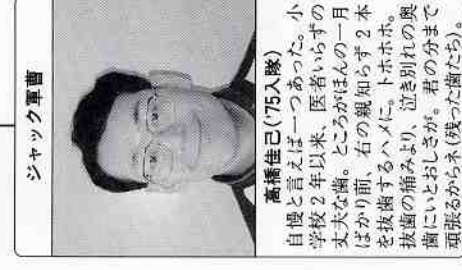 ジャック軍曹
高橋佳己('75入隊)
自慢と言えば一つあった。小
学校2年以来、医者いらずの
丈夫な歯。ところがほんの一月
ばかり前、右の親知らず2本
を抜歯するハメに。トホホホ。
抜歯の痛みより、泣き別れの奥
歯にいとおしさが。君の分まで
頑張るからネ(残った歯たち)。